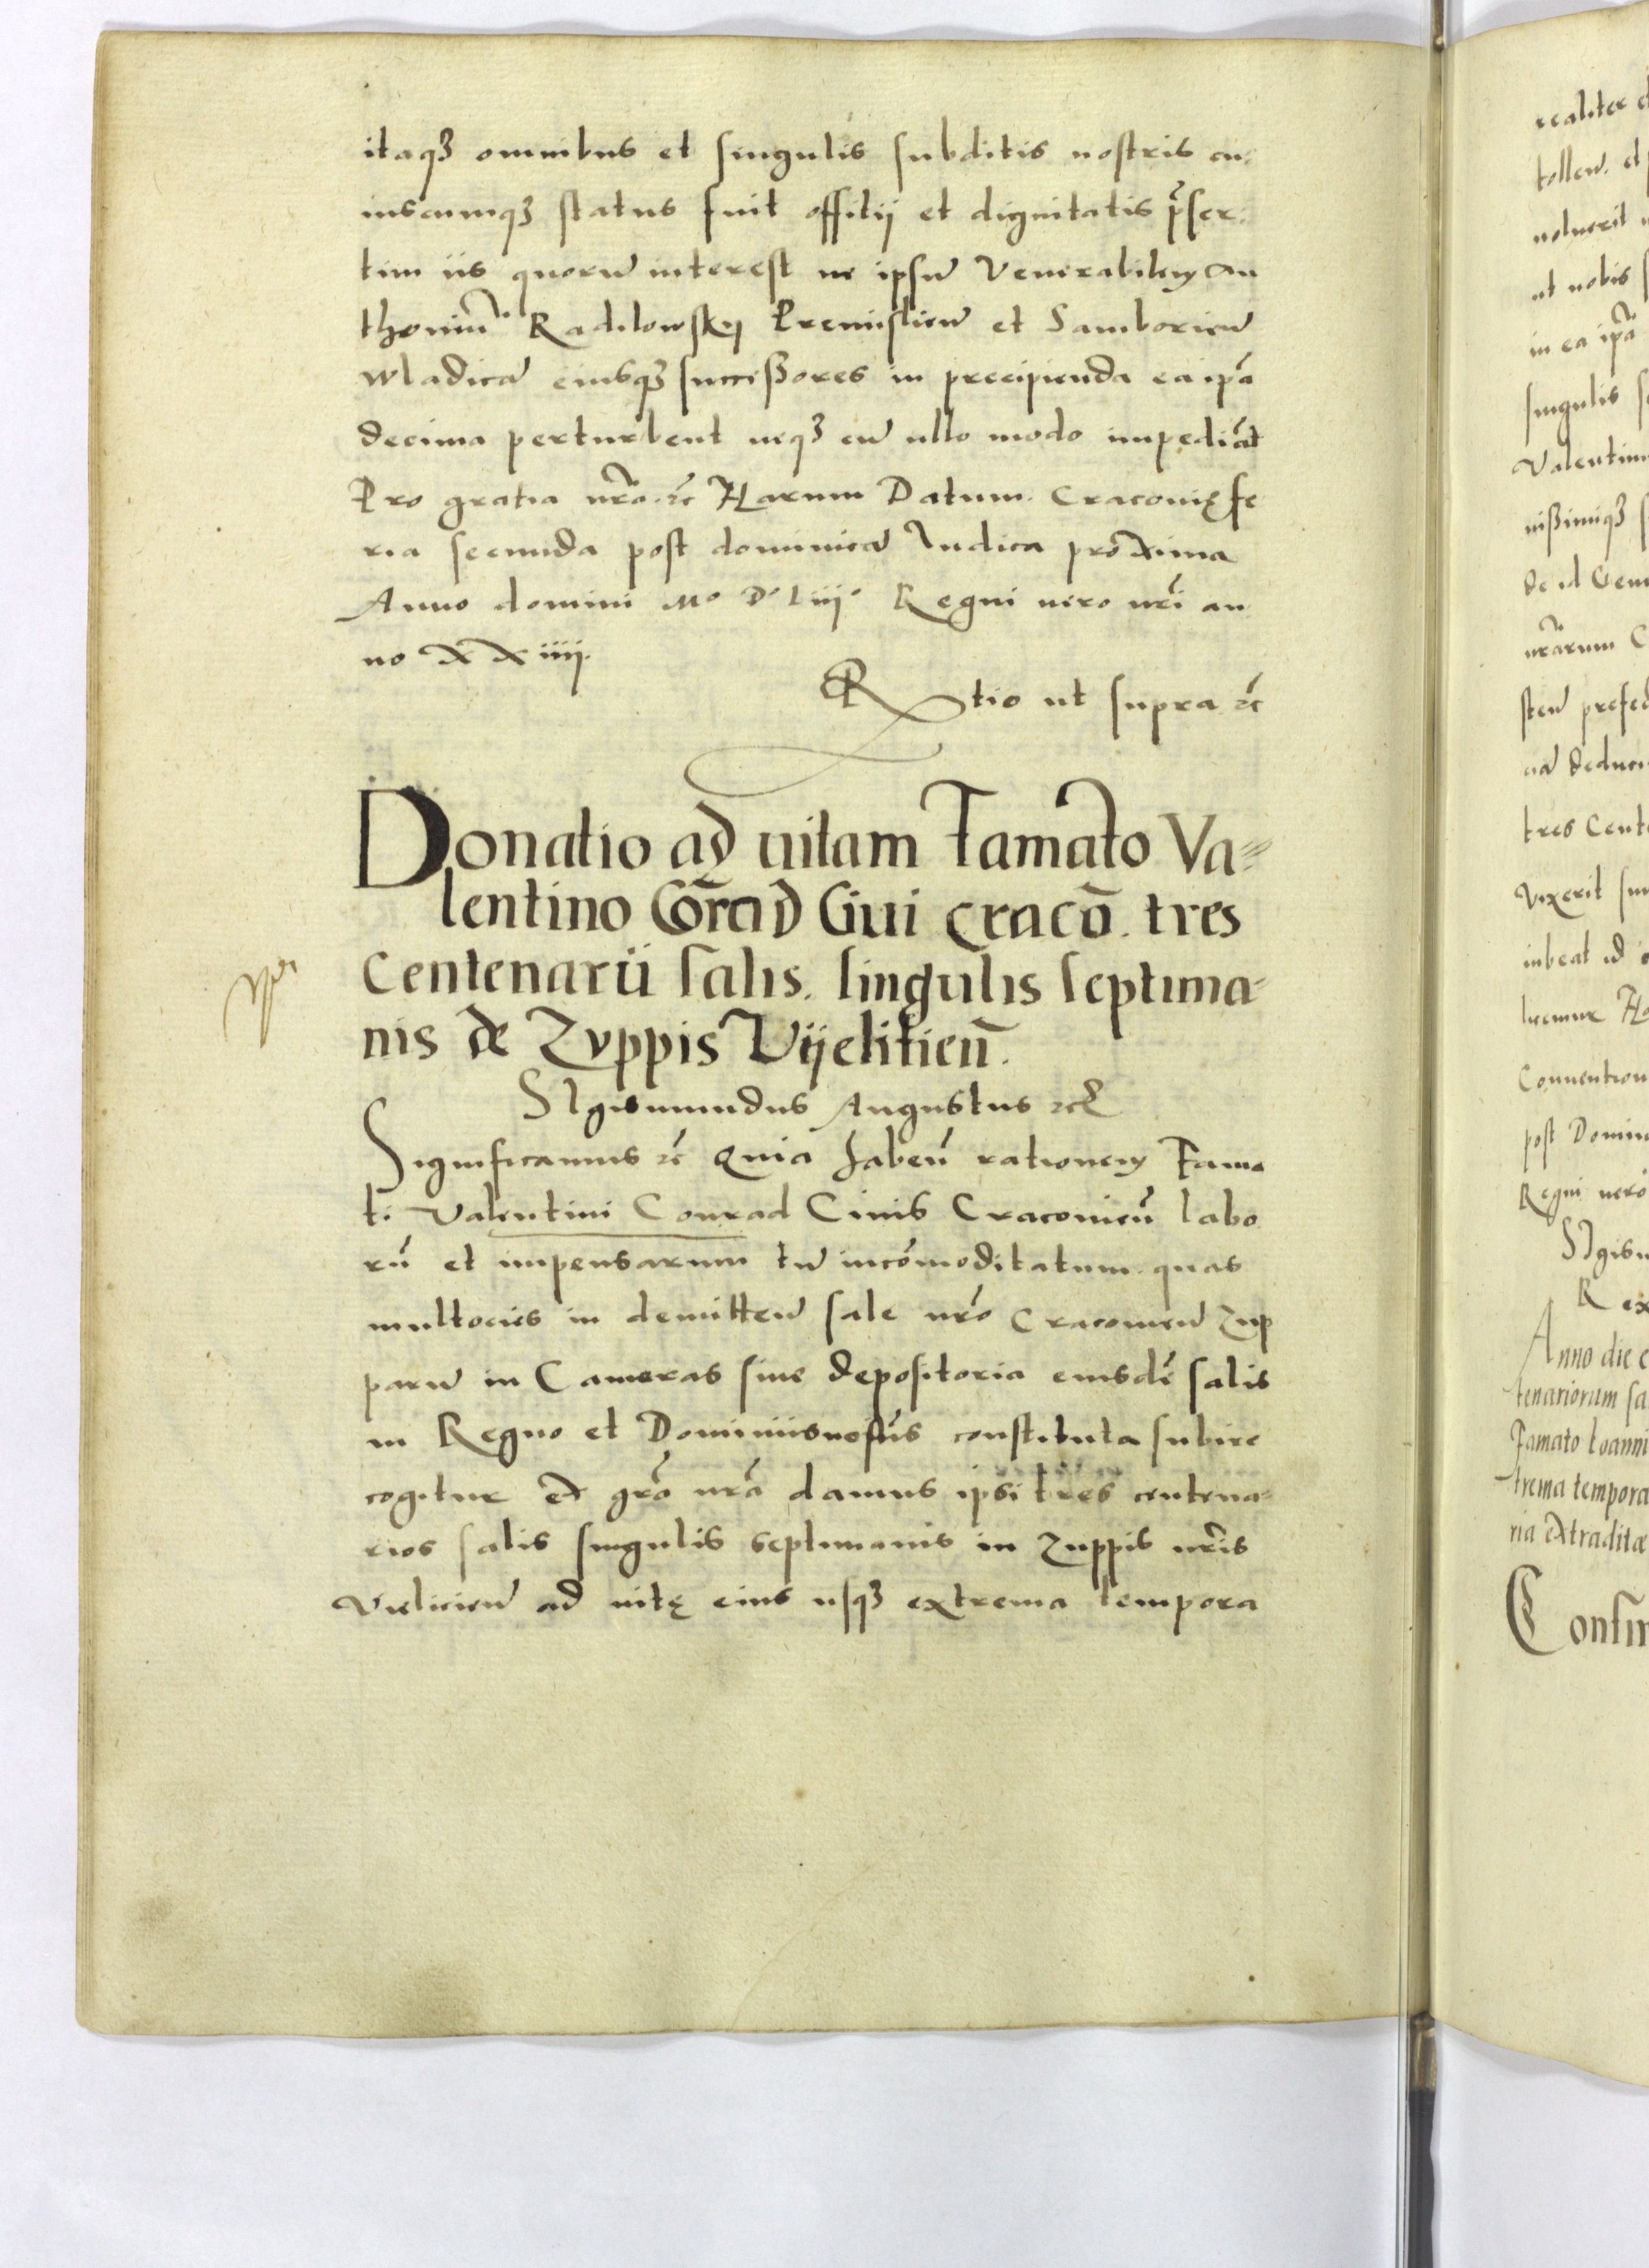 itaqꝫ omnibus et singulis subditis nostris cu-
iuscumqꝫ status suit offitij et dignitatis p̃ser-
tim iis quorũ interest ne ipsũ Venerabilem An
thoniũ Radilowskij Premislien̄ et Samborien̄
wladicã eiusqꝫ successores in precipienda ea ip̃a
decima perturbent neqꝫ eũ ullo modo impediãt
Pro gratia nr̃a ⁊c̃ Harum Datum Cracovię fe
ria secunda post dominicã Iudica proxima
Anno domini Mº Dº Liiijº Regni vero nr̃i an
no xxiiij.
Rtio ut supra ⁊c̃
Donatio ad uitam famato Va-
lentino Cõrad Ciui Cracõ. tres
Centenarii salis. singulis septima-
nis de Zuppis Vijelitień.
SIgismundus Augustus ⁊c̃
Significamus ⁊c̃ Quia haben̄ rationem Fama
ti Valentini Conrad Ciuis Cracouien̄ labo
rũ et impensarum tũ incõmoditatum quas
multocies in demitten̄ sale nr̃o Cracouien̄ Zup
parũ in Cameras siue depositoria eiusdẽ salis
in Regno et Dominiis nostris constituta subire
cogitur ex gr̃a nr̃a damus ipsi tres centena-
rios salis singulis septimanis in Zuppis nr̃is
Vielicien̄ ad uitę eius usqꝫ extrema tempora
realiter
tollen̄. et
noluerit
ut nobis
in ea ip̃a
singulis
Valentin
nissimiqꝫ
nr̃arum C
tres Cent
Vixerit
iubeat id
Conuention
post Domin
Regni uero
SIgis
Rex
Anno die
tenariorum sa
Famato Ioanni
trema tempora
ria extraditæ
Confir